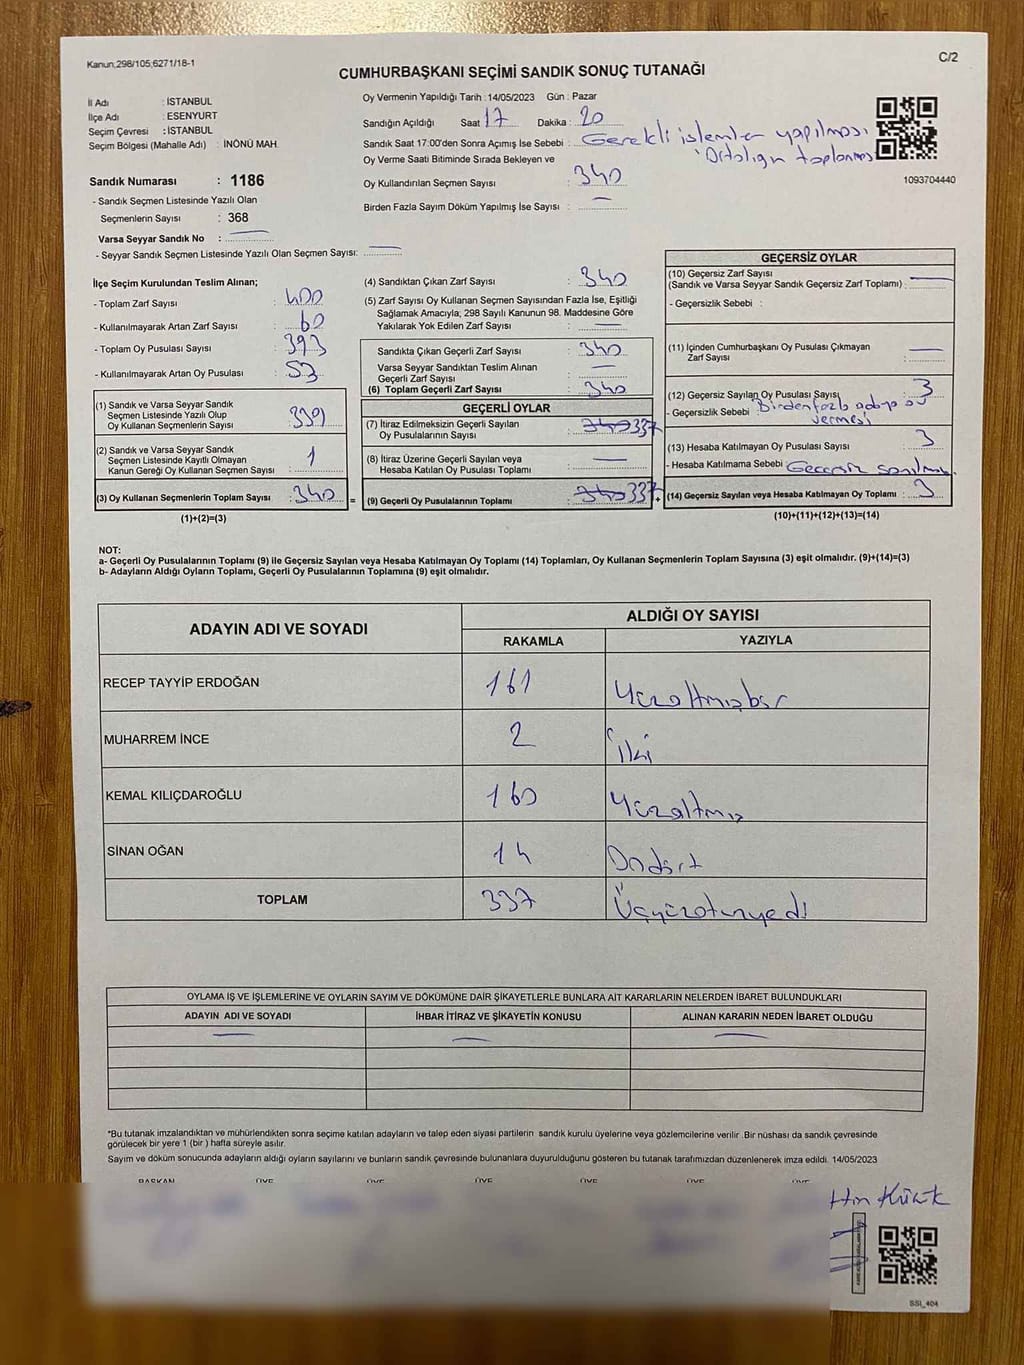 Kanun;298/105;6271/18-1
C/2
CUMHURBAŞKANI SEÇİMİ SANDIK SONUÇ TUTANAĞI
İl Adı : İSTANBUL
İlçe Adı : ESENYURT
Seçim Çevresi : İSTANBUL
Seçim Bölgesi (Mahalle Adı) : İNÖNÜ MAH.
Sandık Numarası : 1186
- Sandık Seçmen Listesinde Yazılı Olan
Seçmenlerin Sayısı : 368
Varsa Seyyar Sandık No :
- Seyyar Sandık Seçmen Listesinde Yazılı Olan Seçmen Sayısı:
Oy Vermenin Yapıldığı Tarih :14/05/2023 Gün : Pazar
Sandığın Açıldığı Saat : 17 Dakika : 20
Sandık Saat 17:00'den Sonra Açımış İse Sebebi : Gerekli işlemler yapılması
toplanması
Oy Verme Saati Bitiminde Sırada Bekleyen ve
Oy Kullandırılan Seçmen Sayısı : 340
Birden Fazla Sayım Döküm Yapılmış İse Sayısı : —
1093704440
İlçe Seçim Kurulundan Teslim Alınan;
- Toplam Zarf Sayısı : 400
- Kullanılmayarak Artan Zarf Sayısı : 60
- Toplam Oy Pusulası Sayısı : 393
- Kullanılmayarak Artan Oy Pusulası : 53
(1) Sandık ve Varsa Seyyar Sandık
Seçmen Listesinde Yazılı Olup
Oy Kullanan Seçmenlerin Sayısı : 339
(2) Sandık ve Varsa Seyyar Sandık
Seçmen Listesinde Kayıtlı Olmayan
Kanun Gereği Oy Kullanan Seçmen Sayısı : 1
(3) Oy Kullanan Seçmenlerin Toplam Sayısı : 340 =
(1)+(2)=(3)
(4) Sandıktan Çıkan Zarf Sayısı : 340
(5) Zarf Sayısı Oy Kullanan Seçmen Sayısından Fazla İse, Eşitliği
Sağlamak Amacıyla; 298 Sayılı Kanunun 98. Maddesine Göre
Yakılarak Yok Edilen Zarf Sayısı : —
Sandıkta Çıkan Geçerli Zarf Sayısı : 340
Varsa Seyyar Sandıktan Teslim Alınan
Geçerli Zarf Sayısı : —
(6) Toplam Geçerli Zarf Sayısı : 340
GEÇERLİ OYLAR
(7) İtiraz Edilmeksizin Geçerli Sayılan
Oy Pusulalarının Sayısı : 340 337
(8) İtiraz Üzerine Geçerli Sayılan veya
Hesaba Katılan Oy Pusulası Toplamı : —
(9) Geçerli Oy Pusulalarının Toplamı : 340 337 +
GEÇERSİZ OYLAR
(10) Geçersiz Zarf Sayısı
(Sandık ve Varsa Seyyar Sandık Geçersiz Zarf Toplamı) : —
- Geçersizlik Sebebi :
(11) İçinden Cumhurbaşkanı Oy Pusulası Çıkmayan
Zarf Sayısı : —
(12) Geçersiz Sayılan Oy Pusulası Sayısı : 3
- Geçersizlik Sebebi : Birden fazla adaya oy
vermesi
(13) Hesaba Katılmayan Oy Pusulası Sayısı : 3
- Hesaba Katılmama Sebebi : Geçersiz
(14) Geçersiz Sayılan veya Hesaba Katılmayan Oy Toplamı : 3
(10)+(11)+(12)+(13)=(14)
NOT:
a- Geçerli Oy Pusulalarının Toplamı (9) ile Geçersiz Sayılan veya Hesaba Katılmayan Oy Toplamı (14) Toplamları, Oy Kullanan Seçmenlerin Toplam Sayısına (3) eşit olmalıdır. (9)+(14)=(3)
b- Adayların Aldığı Oyların Toplamı, Geçerli Oy Pusulalarının Toplamına (9) eşit olmalıdır.
ADAYIN ADI VE SOYADI
ALDIĞI OY SAYISI
RAKAMLA YAZIYLA
RECEP TAYYİP ERDOĞAN 161 Yüzaltmışbir
MUHARREM İNCE 2 İki
KEMAL KILIÇDAROĞLU 160 Yüzaltmış
SİNAN OĞAN 14 Ondört
TOPLAM 337 Üçyüzotuzyedi
OYLAMA İŞ VE İŞLEMLERİNE VE OYLARIN SAYIM VE DÖKÜMÜNE DAİR ŞİKAYETLERLE BUNLARA AİT KARARLARIN NELERDEN İBARET BULUNDUKLARI
ADAYIN ADI VE SOYADI İHBAR İTİRAZ VE ŞİKAYETİN KONUSU ALINAN KARARIN NEDEN İBARET OLDUĞU
*Bu tutanak imzalandıktan ve mühürlendikten sonra seçime katılan adayların ve talep eden siyasi partilerin sandık kurulu üyelerine veya gözlemcilerine verilir .Bir nüshası da sandık çevresinde
görülecek bir yere 1 (bir ) hafta süreyle asılır.
Sayım ve döküm sonucunda adayların aldığı oyların sayılarını ve bunların sandık çevresinde bulunanlara duyurulduğunu gösteren bu tutanak tarafımızdan düzenlenerek imza edildi. 14/05/2023
BAŞKAN ÜYE ÜYE ÜYE ÜYE ÜYE ÜYE
SSI_404